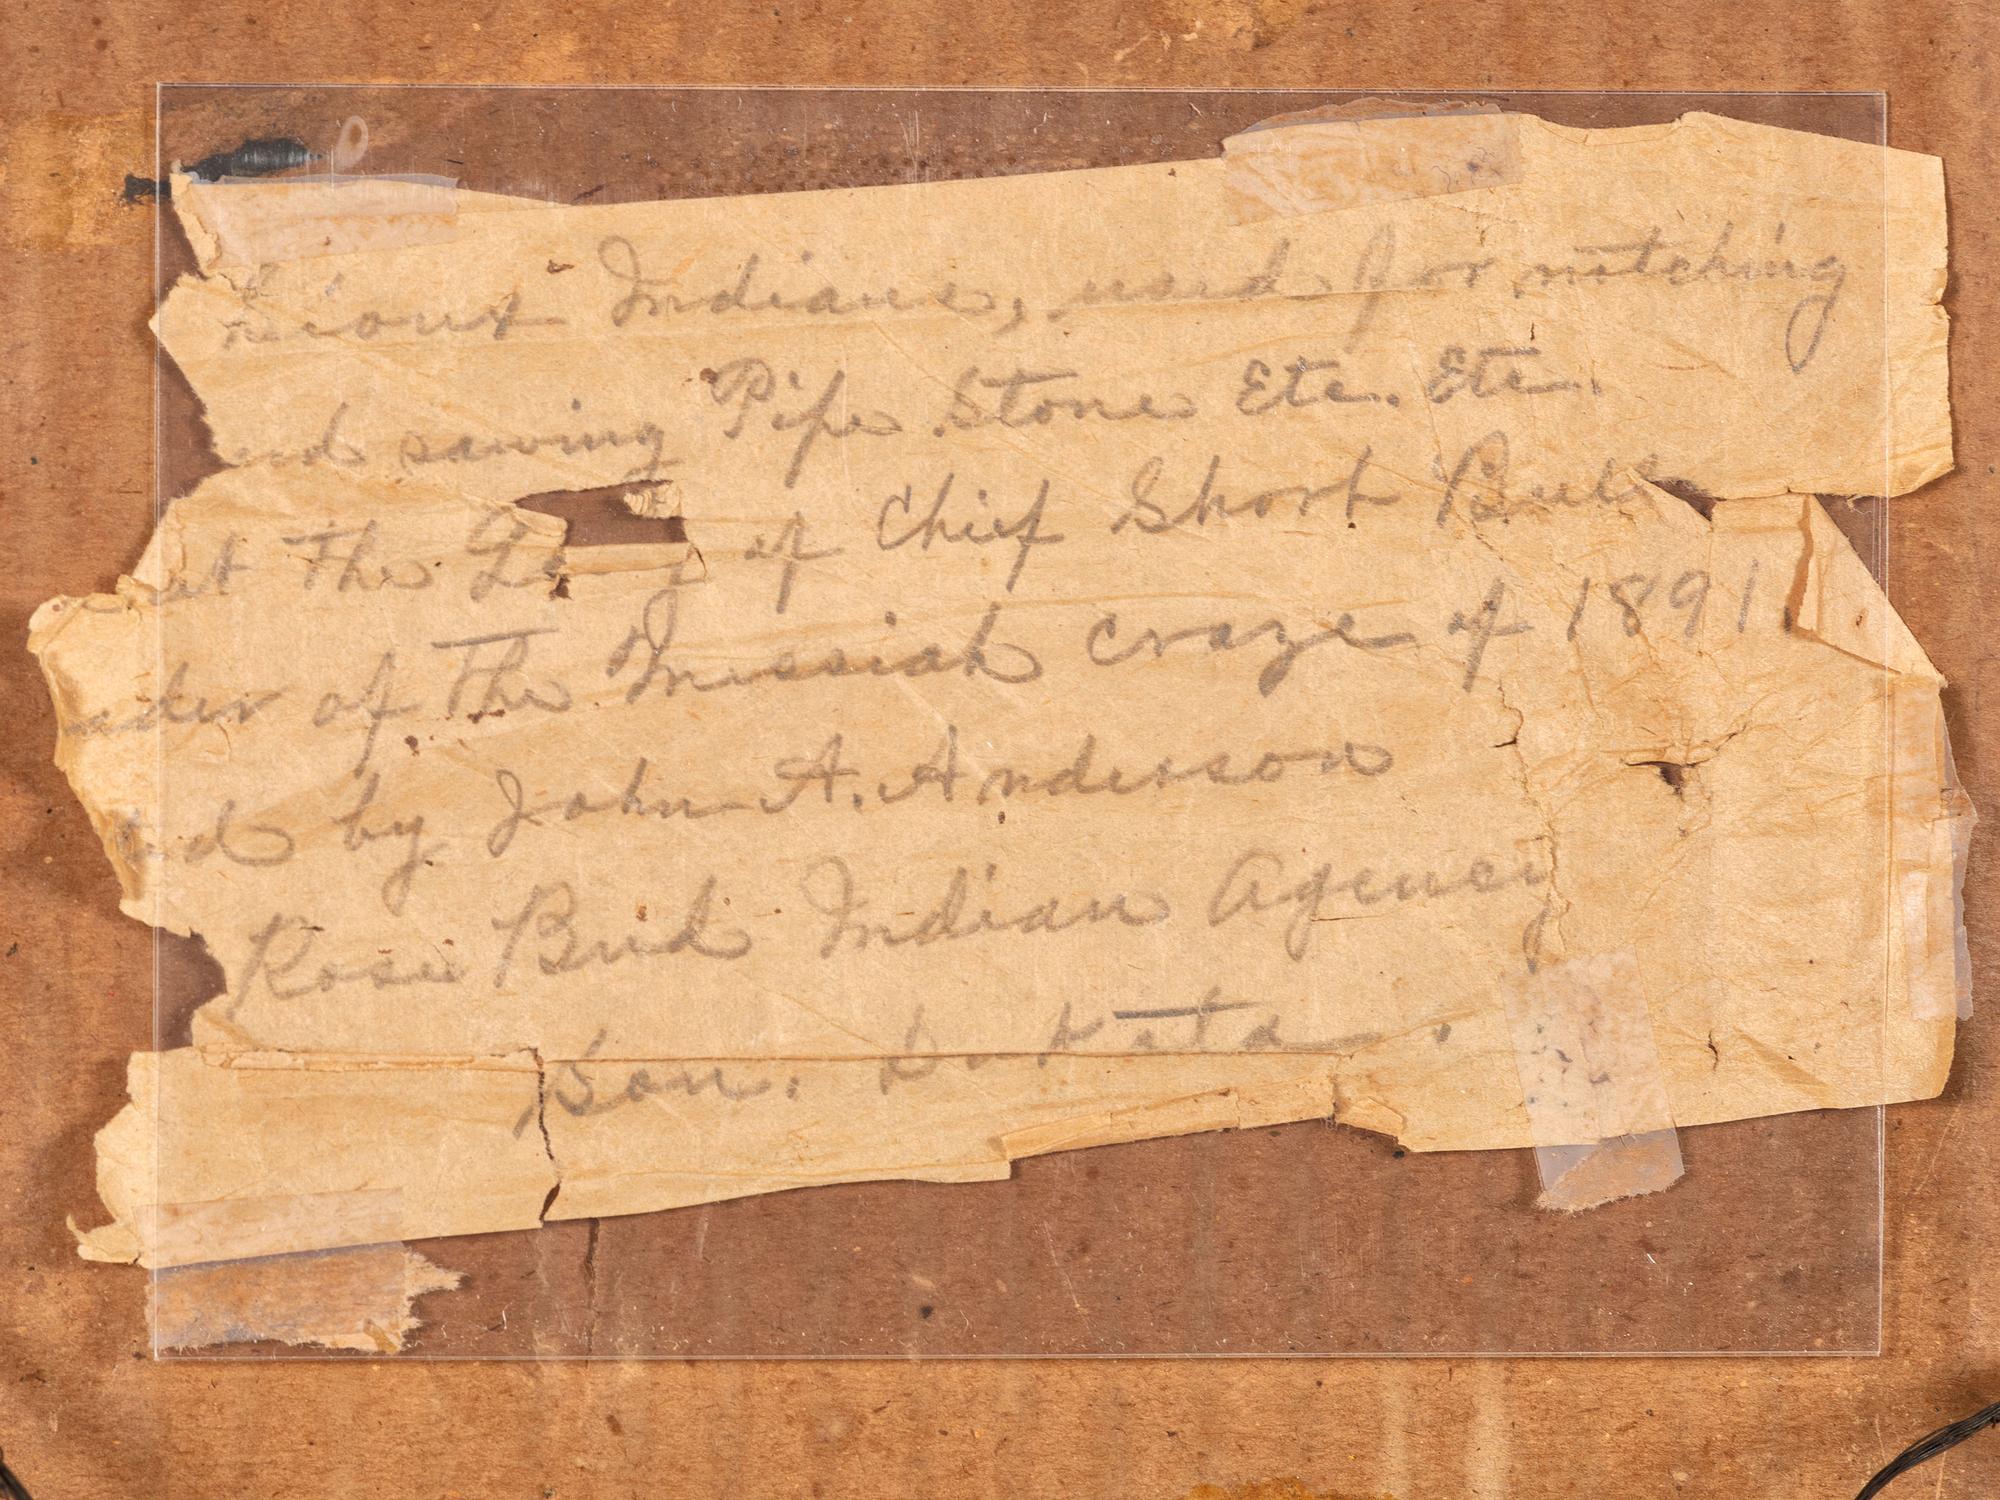 Indians, used for notching
nd sawing Pipe Stone Etc. Etc.
at The of Chief Short Bull
ader of The Messiah craze of 1891.
ed by John A. Anderson
Rose Bud Indian Agency
Sou. Dakota.